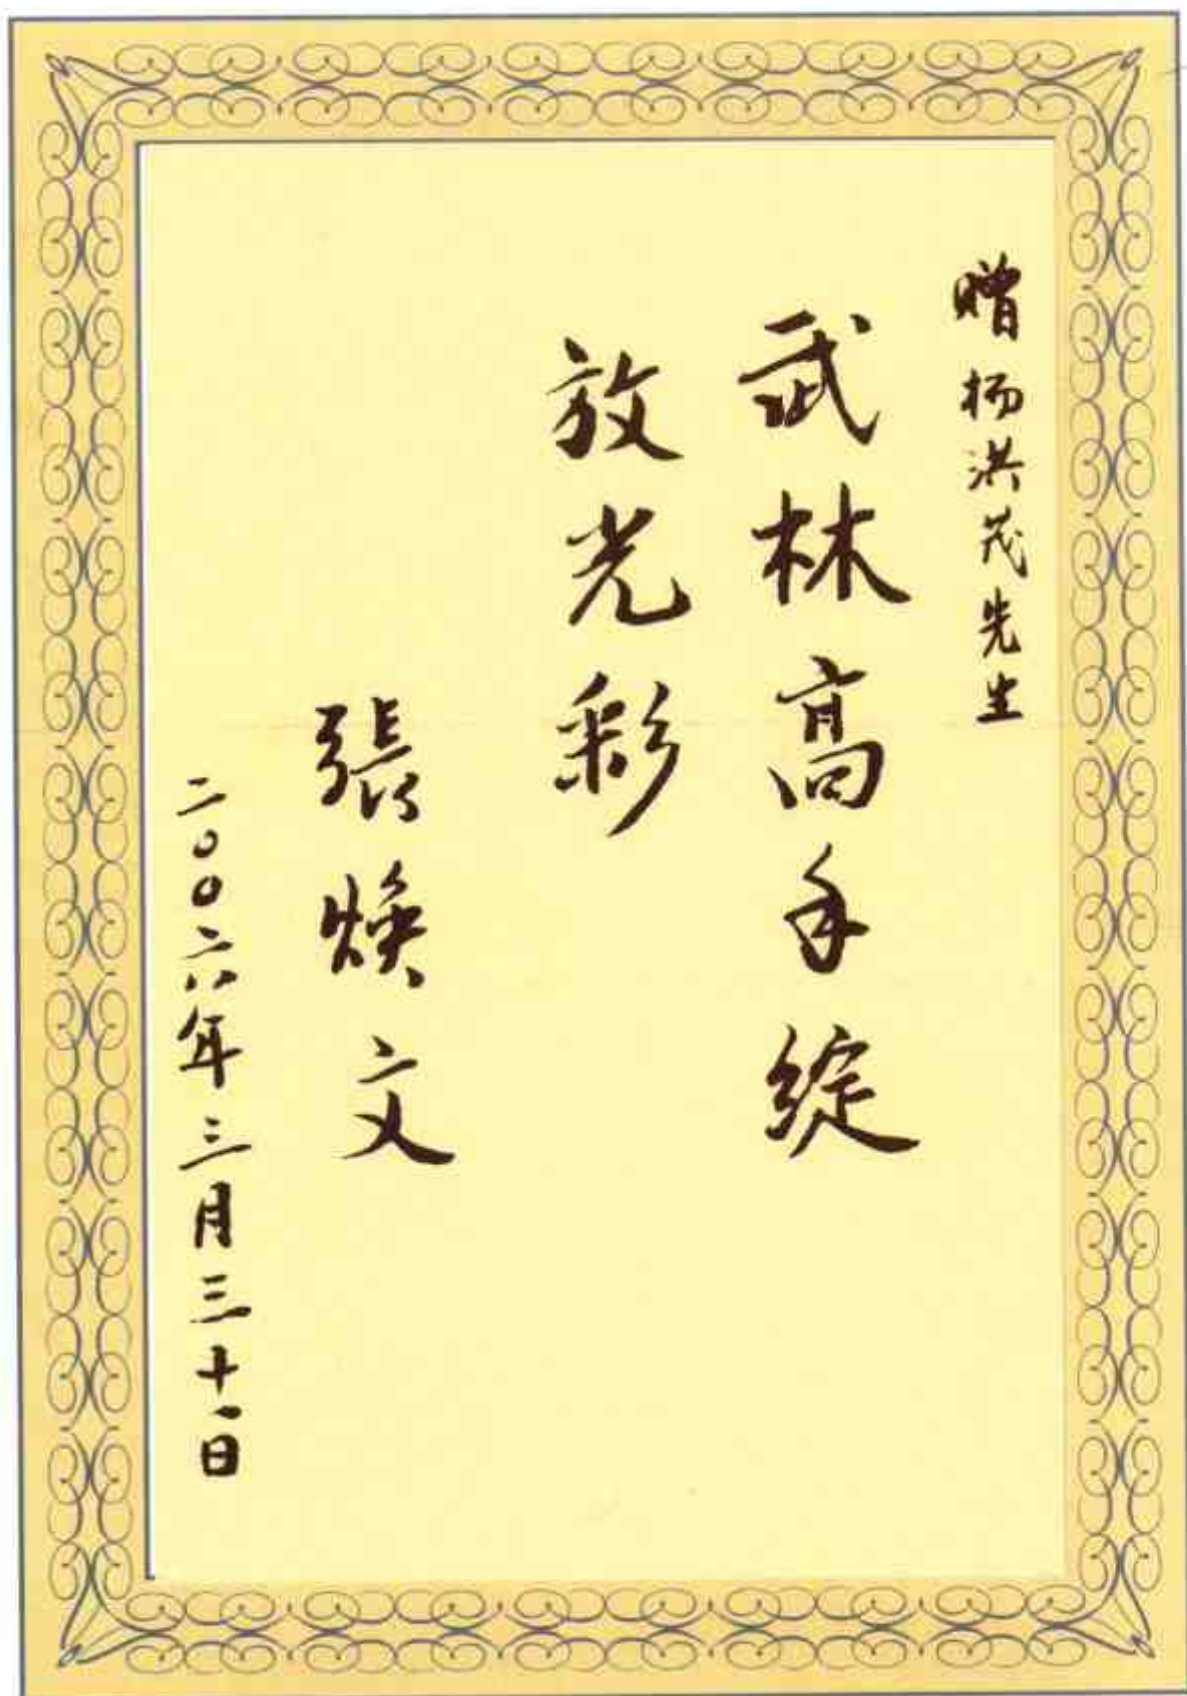 赠杨洪茂先生
武林高手绽
放光彩
張焕文
二〇〇六年三月三十一日